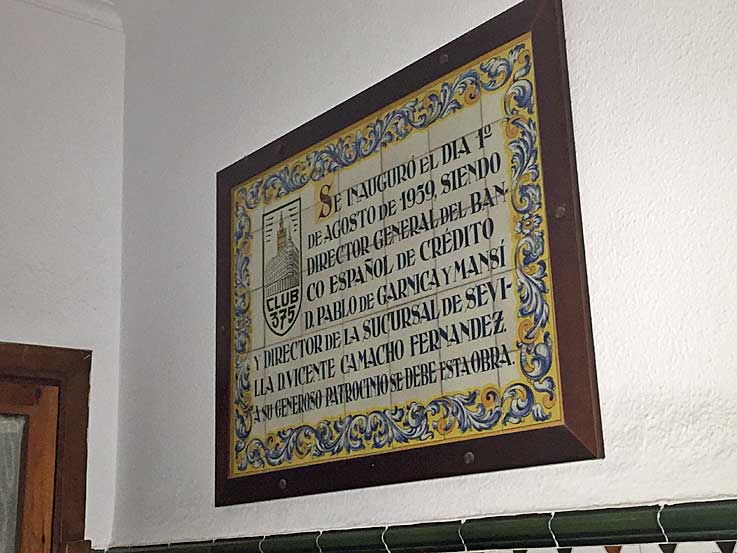 SE INAUGURÓ EL DIA 1º
DE AGOSTO DE 1959, SIENDO
DIRECTOR GENERAL DEL BAN-
CO ESPAÑOL DE CRÉDITO
D. PABLO DE GARNICA Y MANSÍ
Y DIRECTOR DE LA SUCURSAL DE SEVI-
LLA D. VICENTE CAMACHO FERNANDEZ.
A SU GENEROSO PATROCINIO SE DEBE ESTA OBRA.
CLUB
375